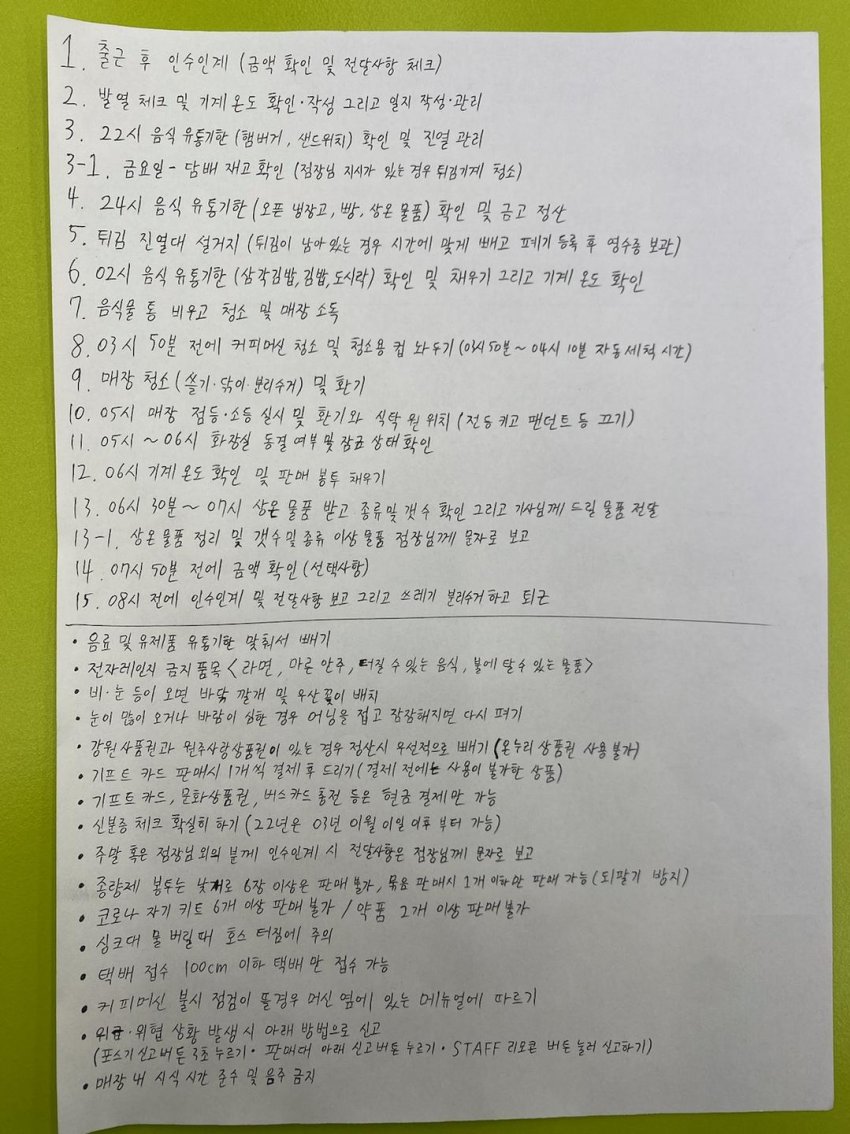 1. 출근 후 인수인계 (금액 확인 및 전달사항 체크)
2. 발열 체크 및 기계 온도 확인·작성 그리고 일지 작성·관리
3. 22시 음식 유통기한 (햄버거, 샌드위치) 확인 및 진열 관리
3-1. 금요일 - 담배 재고 확인 (점장님 지시가 있는 경우 튀김기계 청소)
4. 24시 음식 유통기한 (오픈 냉장고, 빵, 상온 물품) 확인 및 금고 정산
5. 튀김 진열대 설거지 (튀김이 남아있는 경우 시간에 맞게 빼고 폐기 등록 후 영수증 보관)
6. 02시 음식 유통기한 (삼각김밥, 김밥, 도시락) 확인 및 채우기 그리고 기계 온도 확인
7. 음식물 통 비우고 청소 및 매장 소독
8. 03시 50분 전에 커피머신 청소 및 청소용 컵 놔두기 (03시 50분 ~ 04시 10분 자동세척 시간)
9. 매장 청소 (쓸기·닦이·분리수거) 및 환기
10. 05시 매장 점등·소등 실시 및 환기와 식탁 원위치 (전등 키고 팬던트 등 끄기)
11. 05시 ~ 06시 화장실 동결 여부 및 잠금 상태 확인
12. 06시 기계 온도 확인 및 판매 봉투 채우기
13. 06시 30분 ~ 07시 상온 물품 받고 종류 및 갯수 확인 그리고 기사님께 드릴 물품 전달
13-1. 상온 물품 정리 및 갯수 및 종류 이상 물품 점장님께 문자로 보고
14. 07시 50분 전에 금액 확인 (선택사항)
15. 08시 전에 인수인계 및 전달사항 보고 그리고 쓰레기 분리수거 하고 퇴근
• 음료 및 유제품 유통기한 맞춰서 빼기
• 전자레인지 금지 품목 < 라면, 마른 안주, 터질 수 있는 음식, 불에 탈 수 있는 물품>
• 비·눈 등이 오면 바닥 깔개 및 우산 꽂이 배치
• 눈이 많이 오거나 바람이 심한 경우 어닝을 접고 잠잠해지면 다시 펴기
• 강원상품권과 원주사랑상품권이 있는 경우 정산시 우선적으로 빼기 (온누리 상품권 사용불가)
• 기프트 카드 판매시 1개씩 결제 후 드리기 (결제 전에는 사용이 불가한 상품)
• 기프트카드, 문화상품권, 버스카드 충전 등은 현금 결제만 가능
• 신분증 체크 확실히 하기 (22년은 03년 이월 이일 이후 부터 가능)
• 주말 혹은 점장님 외의 분께 인수인계 시 전달사항은 점장님께 문자로 보고
• 종량제 봉투는 낯개로 6장 이상은 판매 불가, 묶음 판매시 1개 이하만 판매 가능 (되팔기 방지)
• 코로나 자기 키트 6개 이상 판매 불가 / 약품 2개 이상 판매불가
• 싱크대 물 버릴때 호스 터짐에 주의
• 택배 접수 100cm 이하 택배만 접수 가능
• 커피머신 불시 점검이 뜰경우 머신 옆에 있는 메뉴얼에 따르기
• 위급·위협 상황 발생 시 아래 방법으로 신고
(포스기 신고버튼 3초 누르기 · 판매대 아래 신고버튼 누르기 · STAFF 리모콘 버튼 눌러 신고하기)
• 매장 내 시식 시간 준수 및 음주 금지